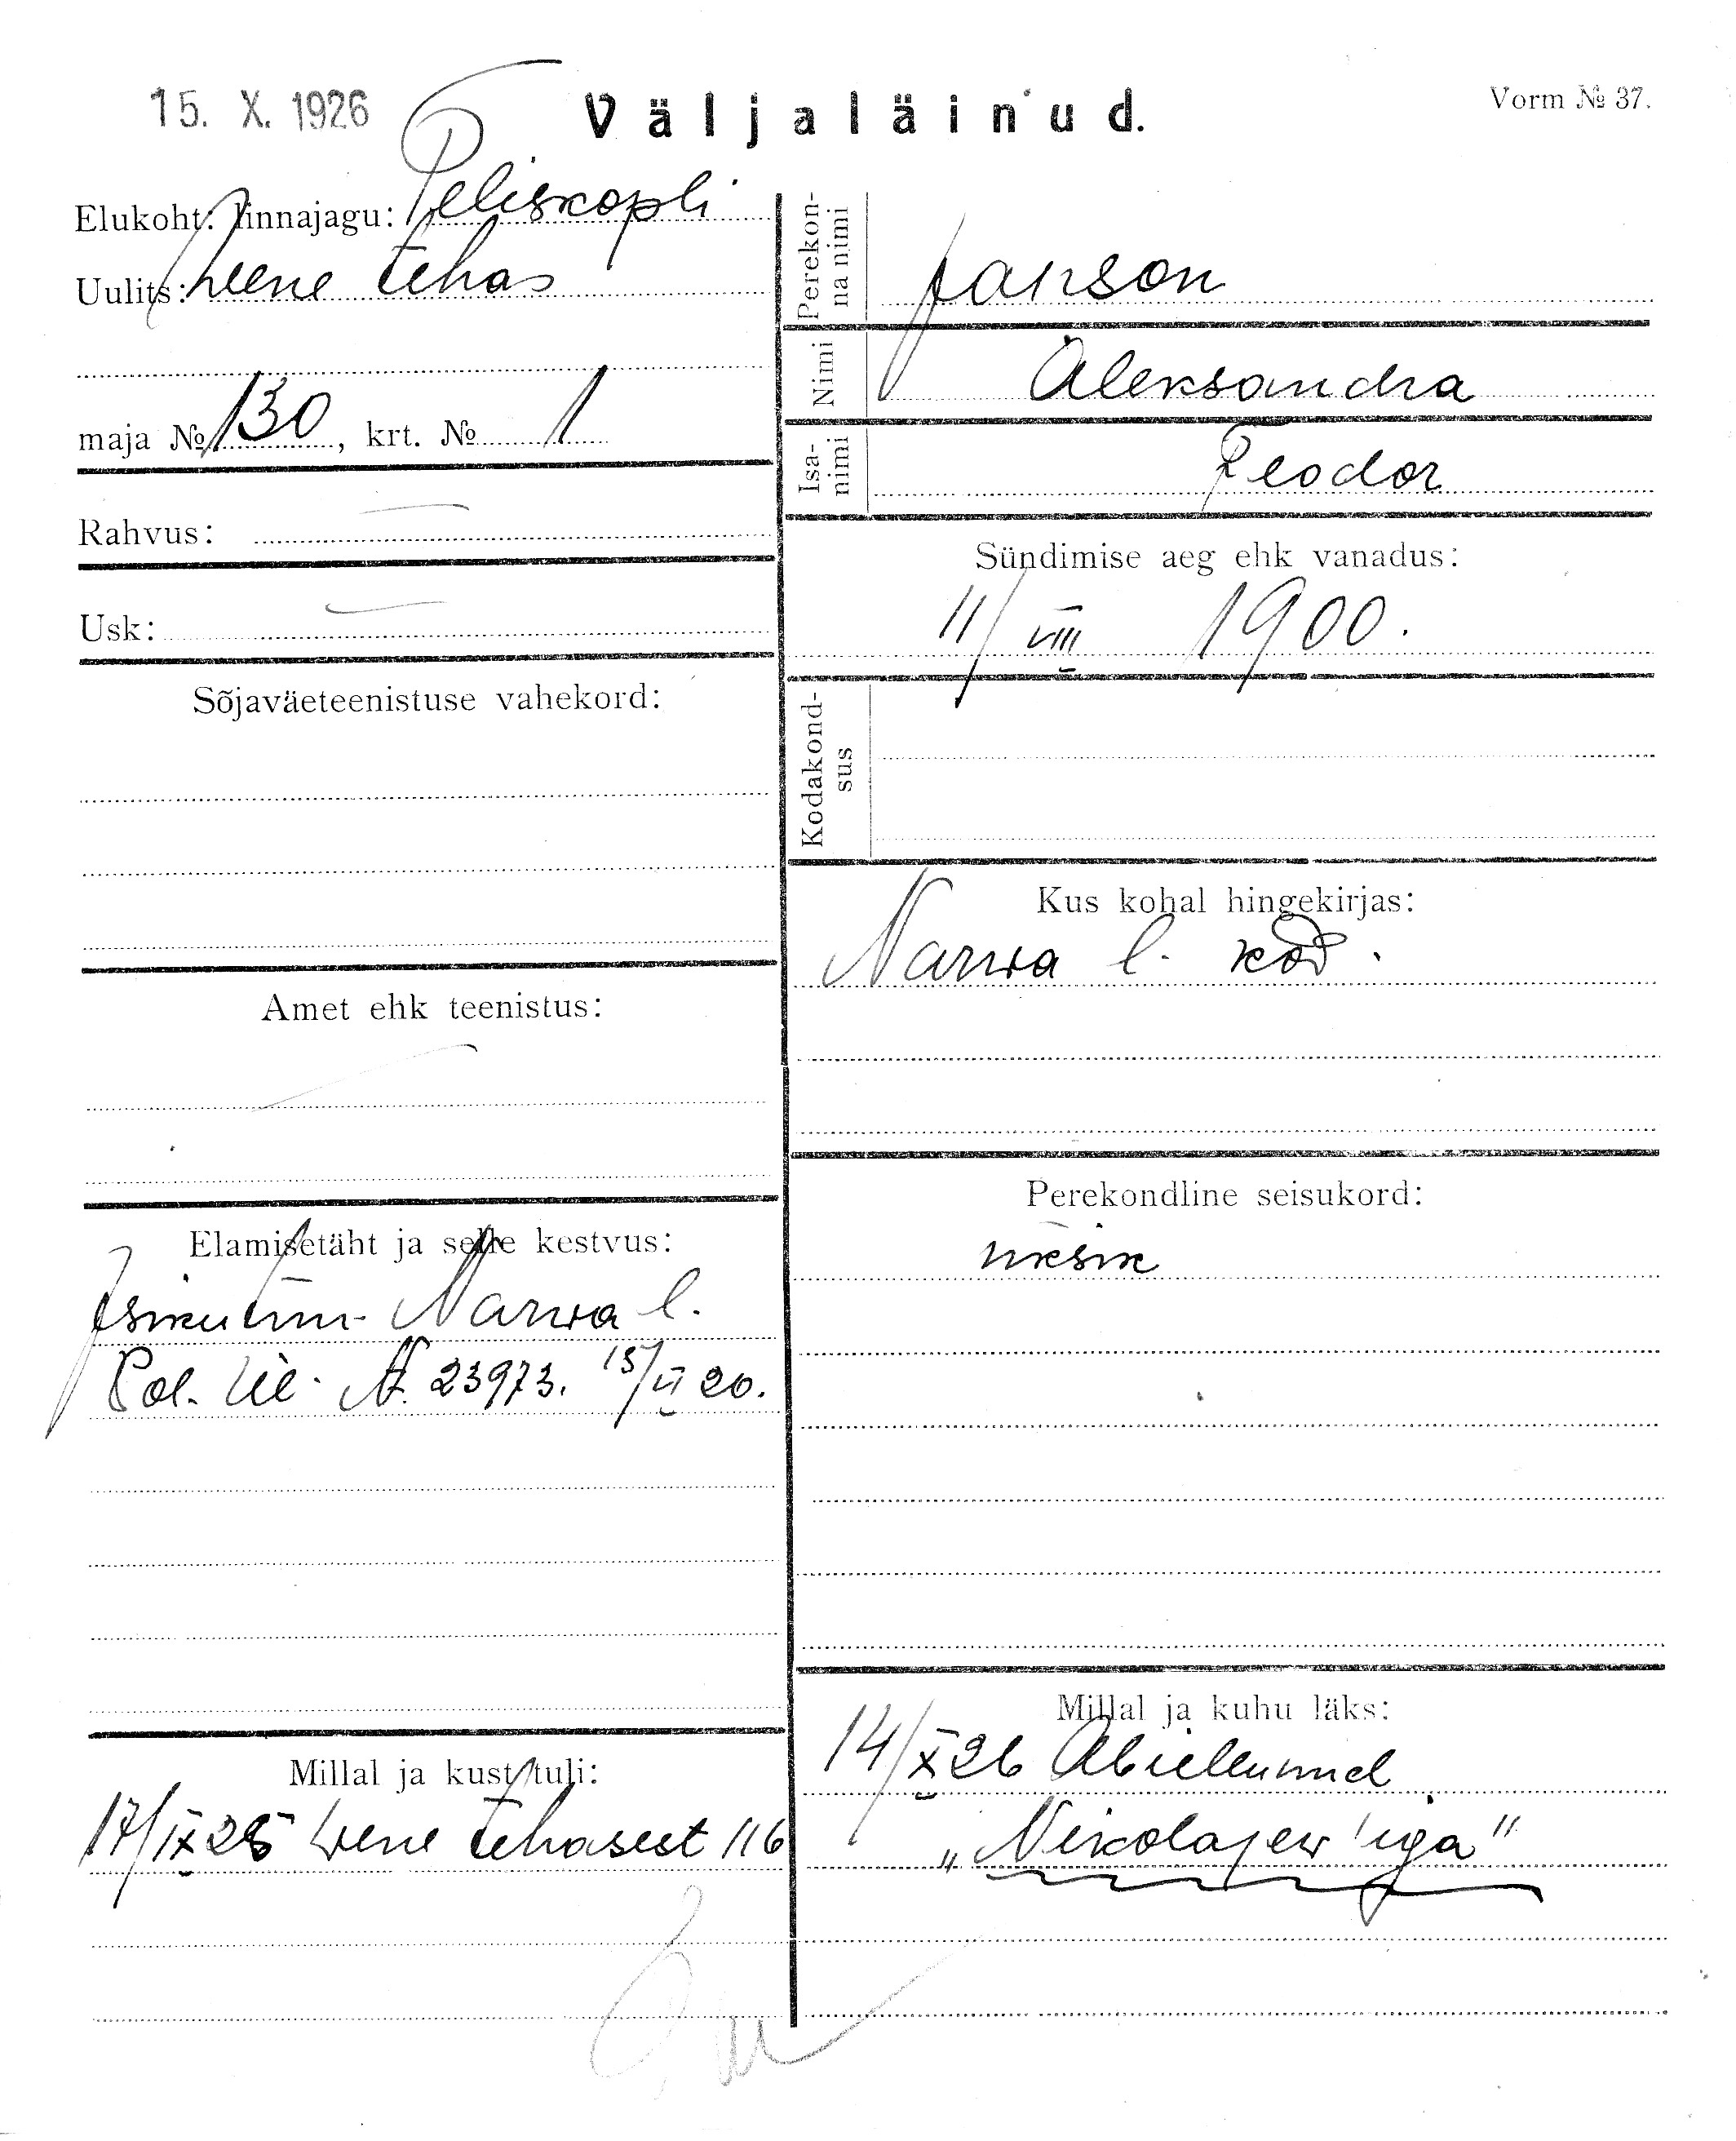 15. X. 1926
Väljaläinud.
Vorm № 37.
Elukoht: linnajagu: Peliskopli
Uulits: Wene tehas
maja № 130, krt. № 1
Rahvus: —
Usk: —
Sõjaväeteenistuse vahekord:
Amet ehk teenistus:
Elamisetäht ja selle kestvus:
Isikutun. Narwa l.
Pol. Ül. N. 23973. 15/VI 20.
Millal ja kust tuli:
17/IX 25 Wene tehasest 116
Perekonna nimi
Janson
Nimi
Aleksandra
Isa-nimi
Feodor
Sündimise aeg ehk vanadus:
11/VIII 1900.
Kodakond-sus
Kus kohal hingekirjas:
Narwa l. kod.
Perekondline seisukord:
üksik
Millal ja kuhu läks:
14/X 26 Abiellunud
„Nikolajew'iga"